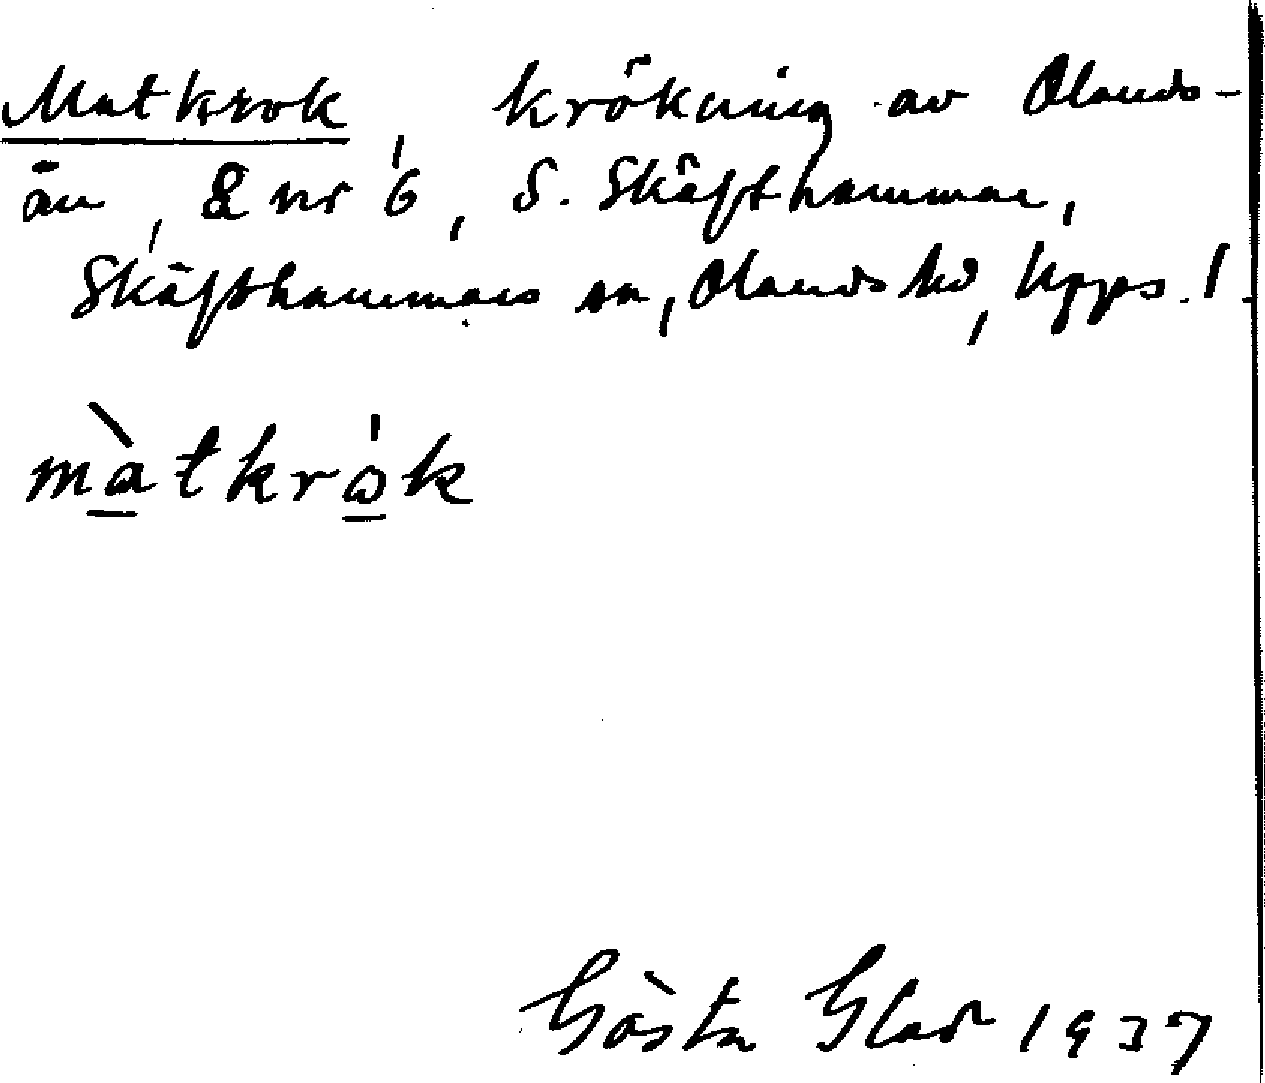 Matkrok, krökning av Olands-
ån, 2 nr 6, S. Skäfthammar,
Skäfthammars sn, Olands hd, Upps. l.
màtkrωk
Gösta 1937